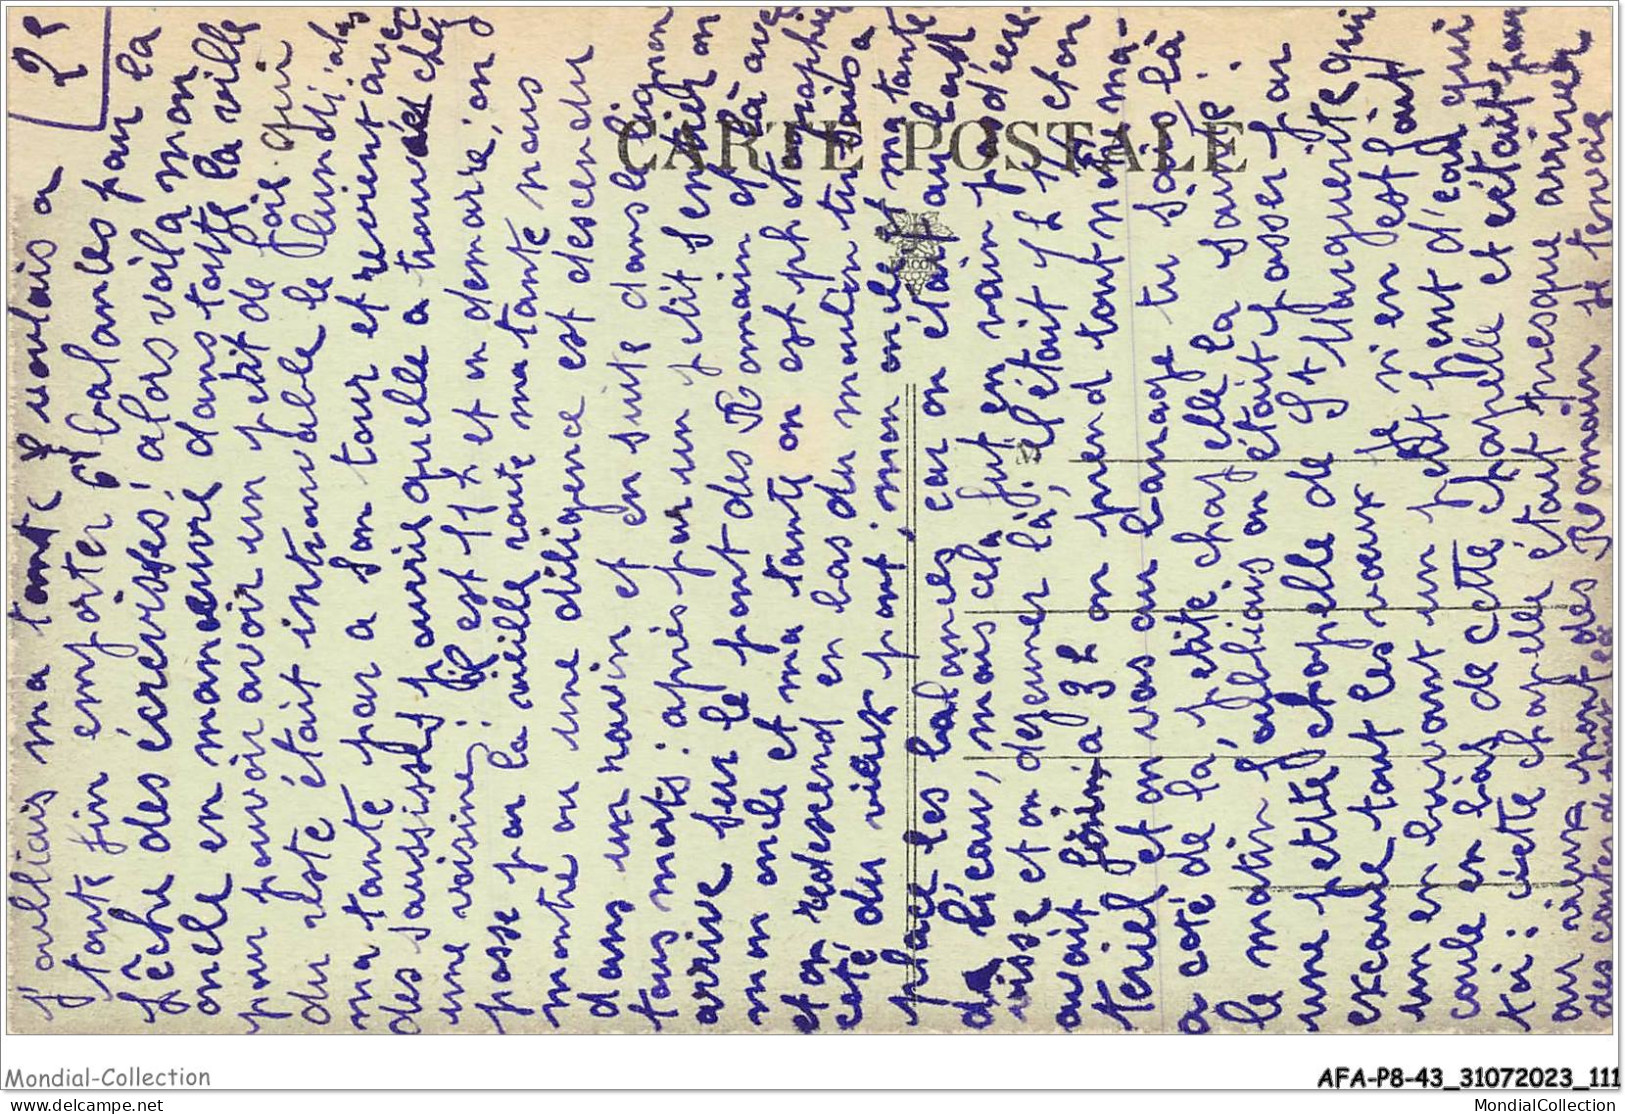 2e
j'oubliais ma tante voulais a
toute fin emporter 6 balances pour la
pêche des écrevisses; alors voila mon
oncle en manœuvre dans toute la ville
pour pouvoir avoir un petit de foie qui
du reste était introuvable le lundi; alors
ma tante par a son tour et revient avec
des saussisses pourris quelle a trouvé chez
une voisine; il est 11 h et on demarre; on
passe par la vieille route ma tante nous
montre ou une diligence est descendu
dans un ravin et en suite dans le lignon
tous morts: après par un petit sentier on
arrive sur le pont des Romain et là avec
mon oncle et ma tante on est photographié
et on redescend en bas du moulin tu sais a
coté du vieux pont; mon oncle et ma tante
place les balances car on était au bord
de l'eau, mais cela fut en vain pas d'écre-
visse et on dejeuner là, il était 1 h ½ et on
avait fini a 3 h on prend tout notre ma-
teriel et on vas au Lanage tu sais là
a coté de la petite chapelle la santé.
le matin j'oubliais on était passer par
une petite chapelle de St Marguerite qui
excaute tout les vœux je m'en est fait
un en buvant un petit peut d'eau qui
coule en bas de cette chapelle et était pour
toi: cette chapelle était presque arriver
au vieux pont des Romain je t'envoie
des cartes de
CARTE POSTALE
Mondial-Collection
AFA-P8-43_31072023_111
www.delcampe.net
MondialCollection